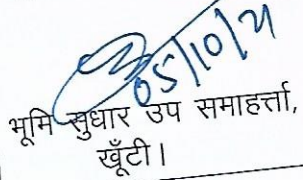 05/10/21
भूमि सुधार उप समाहर्त्ता,
खूँटी।